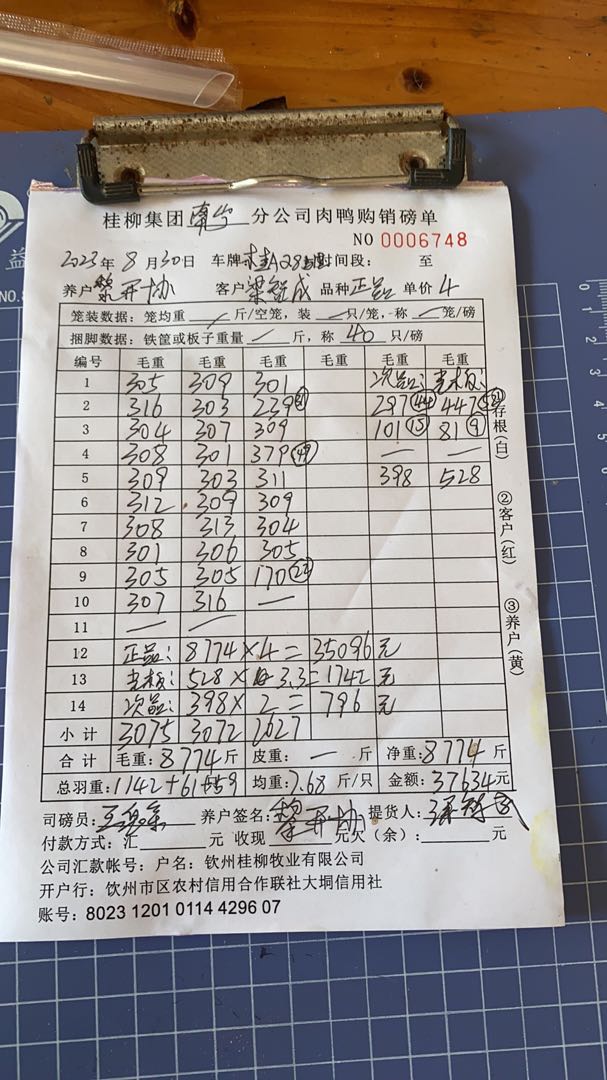 桂柳集团 分公司肉鸭购销磅单
NO 0006748
2023年 8月30日 车牌 时间段: 至
养户 黎开协 客户 梁 成 品种 正品 单价 4
笼装数据: 笼均重 / 斤/空笼, 装 / 只/笼, 称 / 笼/磅
捆脚数据: 铁筐或板子重量 / 斤, 称 40 只/磅
编号 毛重 毛重 毛重 毛重 毛重 毛重
1 305 309 301 次品:
2 316 303 239 297 (44) 447
3 304 307 309 101 (15) 81 (9)
4 308 301 379 (49) — —
5 309 303 311 398 528
6 312 309 309
7 308 313 304
8 301 306 305
9 305 305 170
10 307 316 —
11 — —
12 正品: 8774×4=35096元
13 528× 3.3=1742元
14 次品: 398×2=796元
小计 3075 3072 2627
合计 毛重: 8774斤 皮重: — 斤 净重: 8774斤
总羽重: 1142+61+59 均重: 7.68 斤/只 金额: 37634元
存根(白)
②客户(红)
③养户(黄)
司磅员: 养户签名: 黎开协 提货人:
付款方式: 汇 元 收现 元欠(余): 元
公司汇款帐号: 户名: 钦州桂柳牧业有限公司
开户行: 钦州市区农村信用合作联社大垌信用社
账号: 8023 1201 0114 4296 07